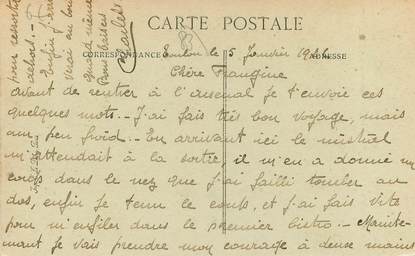 CARTE POSTALE
CORRESPONDANCE
ADRESSE
Toulon le 5 Janvier
Chère Frangine
avant de rentrer à l'arsenal je t'envoie ces
quelques mots. - J'ai fais très bon voyage, mais
un peu froid. - En arrivant ici le mistral
m'attendait à la sortie, il m'en a donné un
coup dans le nez que j'ai failli tomber au
dos, enfin je tenu le coup, et j'ai fais vite
pour m'enfiler dans le premier bistro. - Mainte-
nant je vais prendre mon courage à deux mains
pour
Enfin
vrai
quand même
Bons baisers
Charles